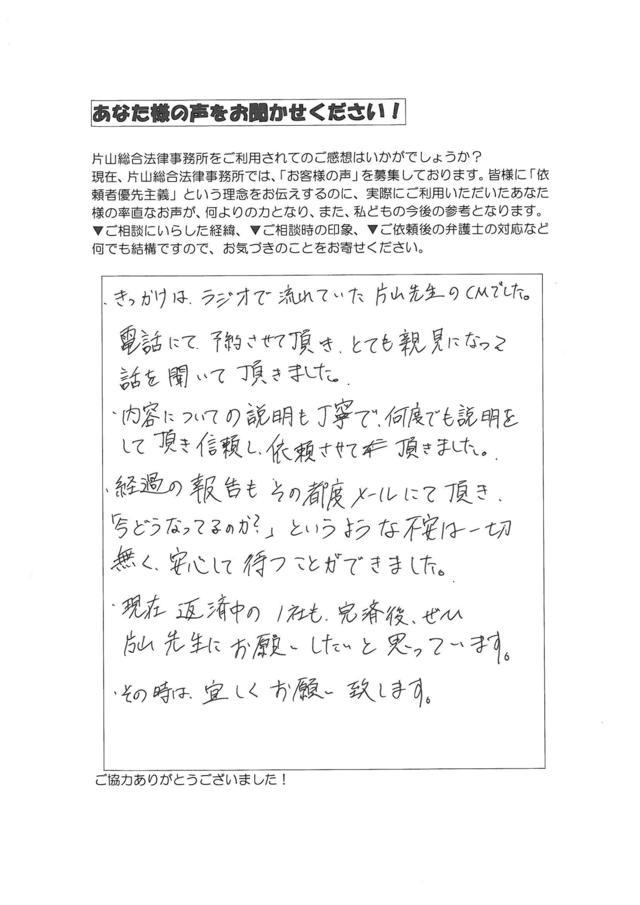 あなた様の声をお聞かせください！
片山総合法律事務所をご利用されてのご感想はいかがでしょうか？
現在、片山総合法律事務所では、「お客様の声」を募集しております。皆様に「依
頼者優先主義」という理念をお伝えするのに、実際にご利用いただいたあなた
様の率直なお声が、何よりの力となり、また、私どもの今後の参考となります。
▼ご相談にいらした経緯、▼ご相談時の印象、▼ご依頼後の弁護士の対応など
何でも結構ですので、お気づきのことをお寄せください。
・きっかけは、ラジオで流れていた片山先生のCMでした。
電話にて、予約させて頂き、とても親見になって
話を聞いて頂きました。
・内容についての説明も丁寧で、何度でも説明を
して頂き信頼し、依頼させて頂きました。
・経過の報告もその都度メールにて頂き、
「今どうなってるのか？」というような不安は一切
無く、安心して待つことができました。
・現在返済中の1社も、完済後、ぜひ
片山先生にお願いしたいと思っています。
・その時は、宜しくお願い致します。
ご協力ありがとうございました！